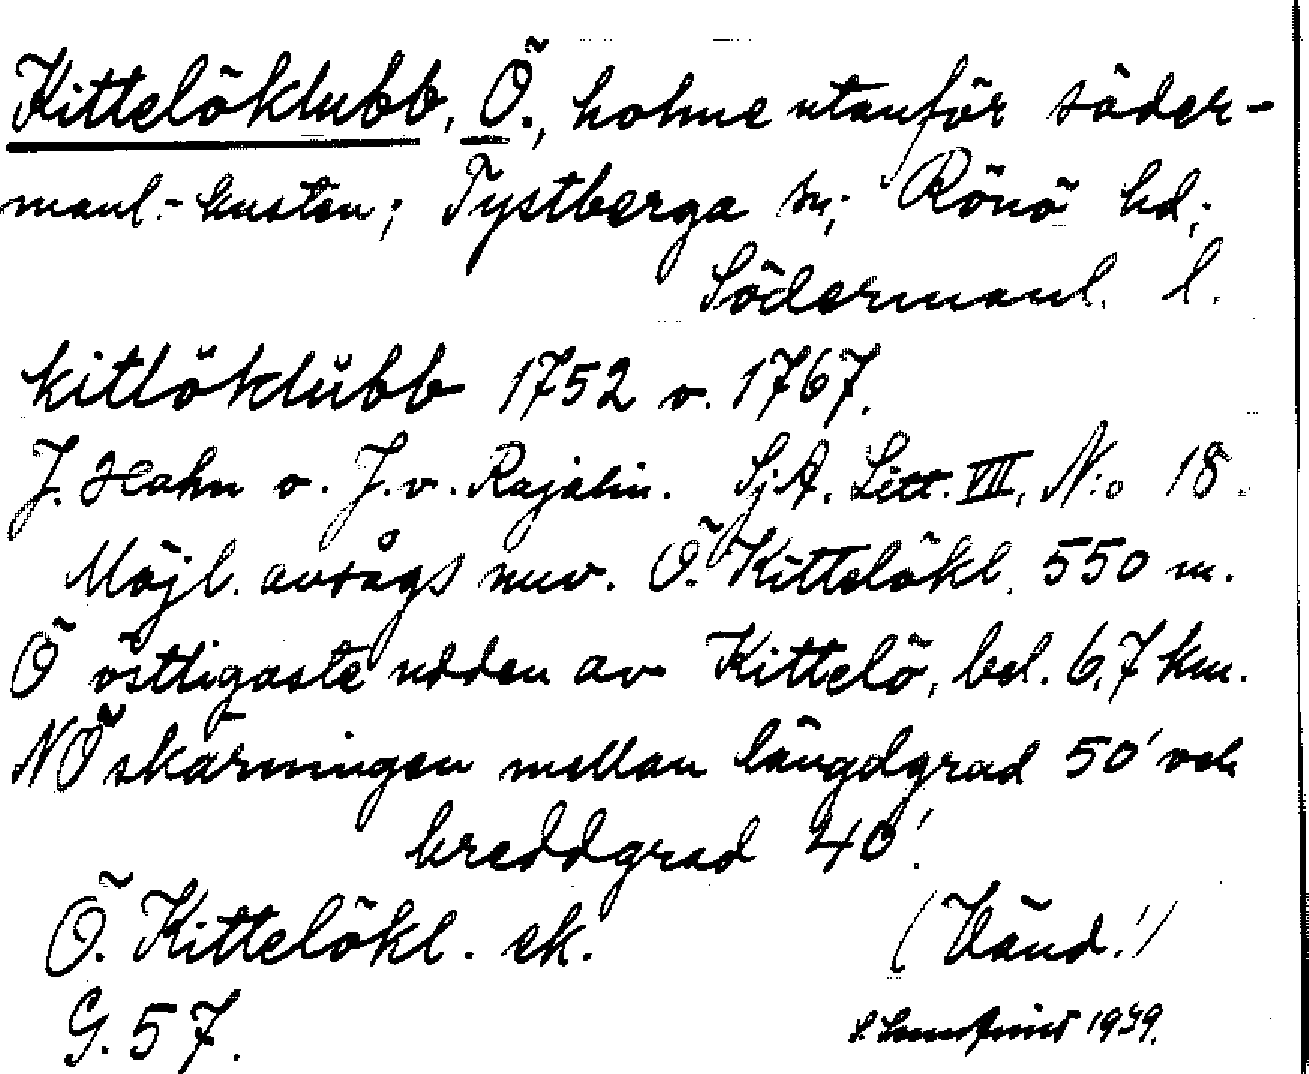 Kittelöklubb, Ö., holme utanför söder-
manl.-kusten; Tystberga sn; Rönö hd;
Södermanl. l.
kitlöklubb 1752 o. 1767.
J. Hahn o. J. v. Rajalin. SjA. Litt. VII, N:o 18.
Möjl. avsågs nuv. Ö. Kittelökl. 550 m.
Ö östligaste udden av Kittelö, bel. 6,7 km.
NÖ skärningen mellan längdgrad 50' och
breddgrad 40'.
Ö. Kittelökl. ek. (Vänd!)
G. 57.
1939.